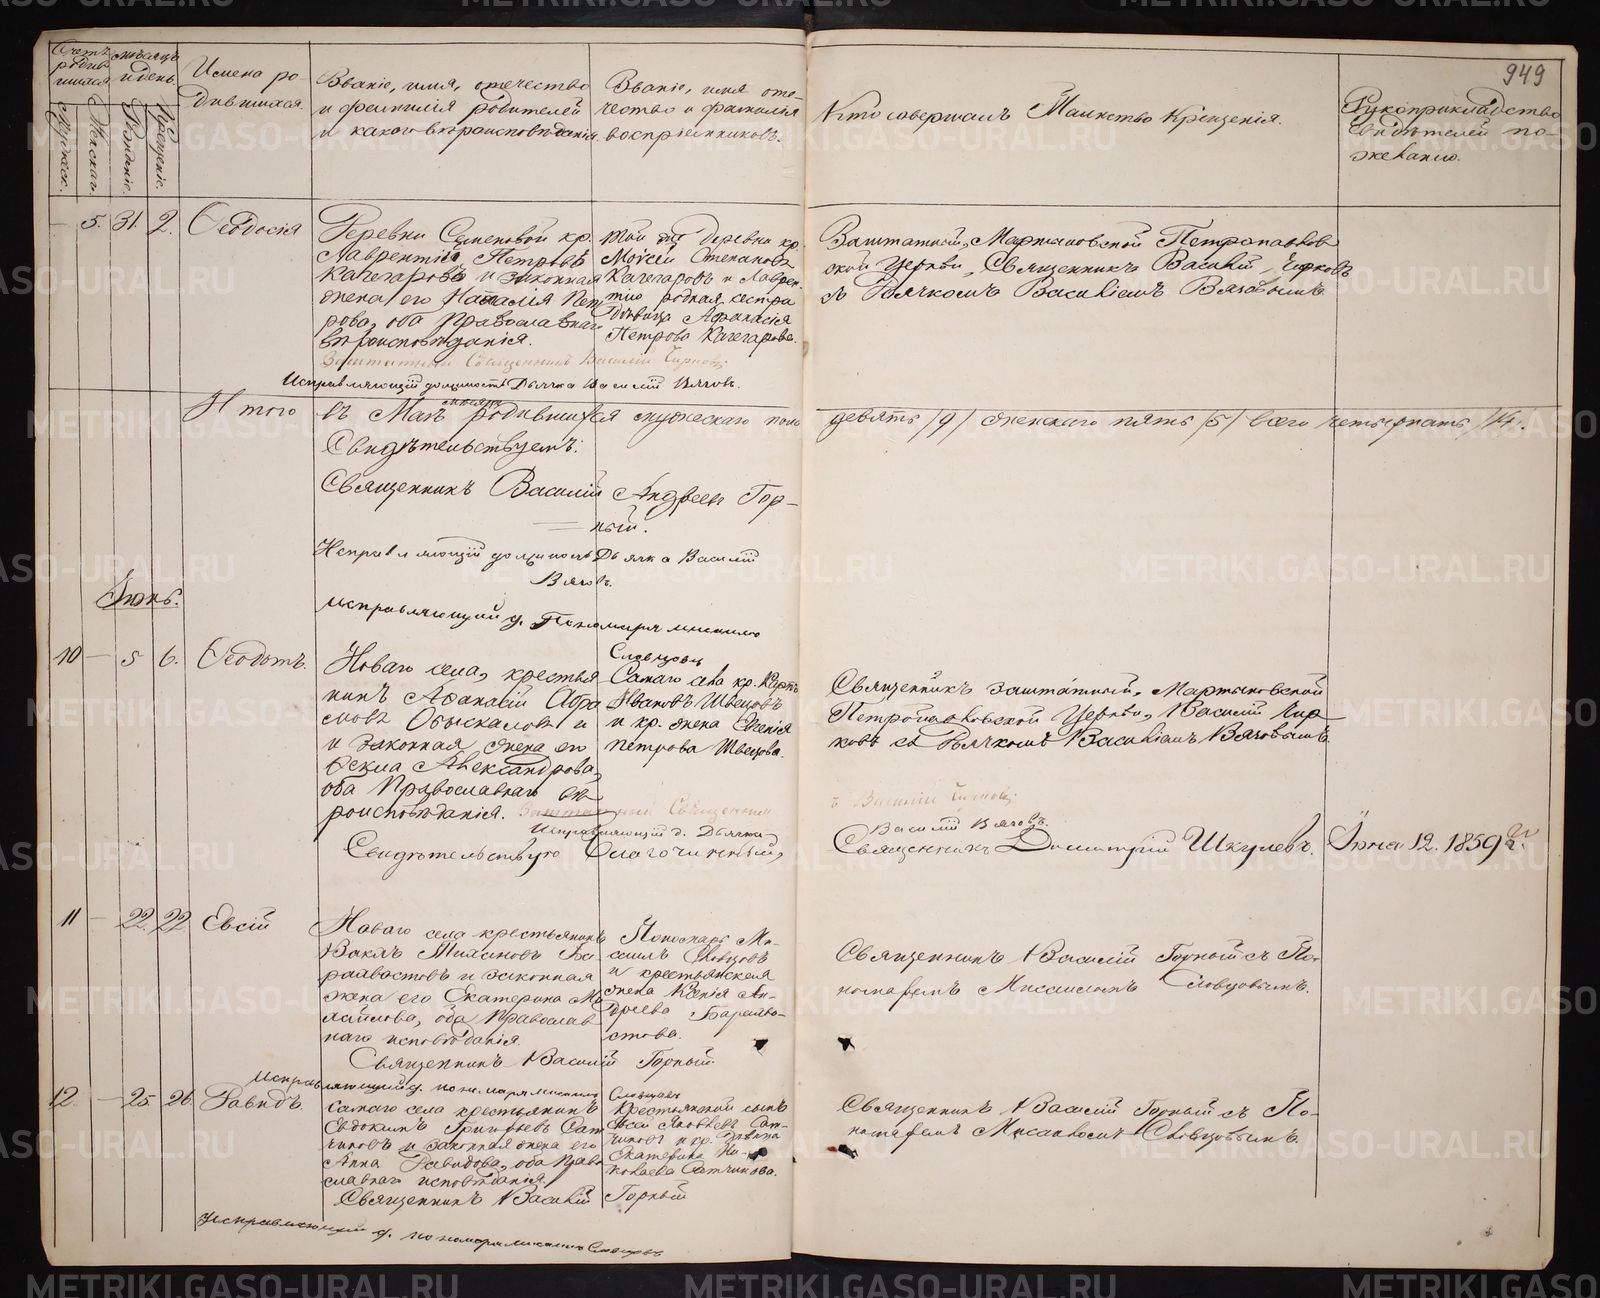 949
Счетъ родившихся
Мужеск.
Женскаг.
Мѣсяцъ и день
Рожденіе.
Крещеніе.
Имена ро-
дившихся.
Званіе, имя, отечество
и фамилія родителей
и какого вѣроисповѣданія.
Званіе, имя оте-
чество и фамилія
воспріемниковъ.
Кто совершалъ Таинство Крещенія.
Рукоприкладство
свидѣтелей по-
желанію.
5. 31. 2. Ѳеодосія
Деревни Семеновой кр.
Лаврентій Петровъ
Качегаровъ и законная
жена его Наталія Пет
рова, оба Православнаго
вѣроисповѣданія.
Той же деревни кр.
Моѵсей Степановъ
Качегаровъ и Лаврен-
тію родная сестра
Дѣвица Афанасія
Петрова Качегарова.
Заштатный, Мартыновской Петропавлов
ской Церкви, Священникъ Василій Чирковъ
съ Дьячкомъ Василіемъ Вяловымъ.
Заштатный Священникъ Василій Чирковъ
Исправляющій должность Дьячка Василій Вяловъ.
Итого въ Маѣ мѣсяцѣ родившихся мужескаго пола девять /9/ женскаго пять /5/ всего четырнать /14/.
Свидѣтельствуемъ:
Священникъ Василій Андреевъ Гор-
ный.
Исправляющій должность Дьячка Василій
Вяловъ.
Исправляющій д. Пономаря Мисаилъ
Словцовъ
Іюнь.
10 — 5 6. Ѳеодотъ.
Новаго села, крестья
нинъ Афанасій Абра
мовъ Обыскаловъ и
и законная жена его
Ѳекла Александрова,
оба Православнаго вѣ
роисповѣданія.
Самаго села кр.
Ивановъ Швецовъ
и кр. жена Евгенія
Петрова Швецова.
Священникъ заштатный, Мартыновской
Петропавловской Церкви, Василій Чир
ковъ съ Дьячкомъ Василіемъ Вяловымъ
Заштатный Священникъ Василій Чирковъ
Исправляющій д. Дьячка Василій Вяловъ.
Свидѣтельствую Благочинный, Священникъ Димитрій Шкулевъ. Іюня 12. 1859 г.
11 — 22. 22 Евсій
Новаго села крестьянинъ
Тихановъ Ба-
рахвостовъ и законная
жена его Екатерина Ми
хайлова, оба Православ
наго исповѣданія.
Пономарь Ми-
саилъ Словцовъ
и крестьянская
жена Ксенія Ан-
дреева Барахво-
стова.
Священникъ Василій Горный съ По-
номаремъ Мисаиломъ Словцовымъ.
Священникъ Василій Горный
Исправляющій д. пономаря Мисаилъ Словцовъ
12. — 25 26. Давидъ.
Самаго села крестьянинъ
Евдокимъ Григорьевъ Сат
чиковъ и законная жена его
Анна Давидова, оба Право
славнаго исповѣданія.
Крестьянскій сынъ
Яковлевъ Сат-
чиковъ и кр. дѣвица
Екатерина Ни-
колаева Сатчикова.
Священникъ Василій Горный съ По-
номаремъ Мисаиломъ Словцовымъ.
Священникъ Василій Горный
Исправляющій д. пономаря Мисаилъ Словцовъ
METRIKI.GASO-URAL.RU